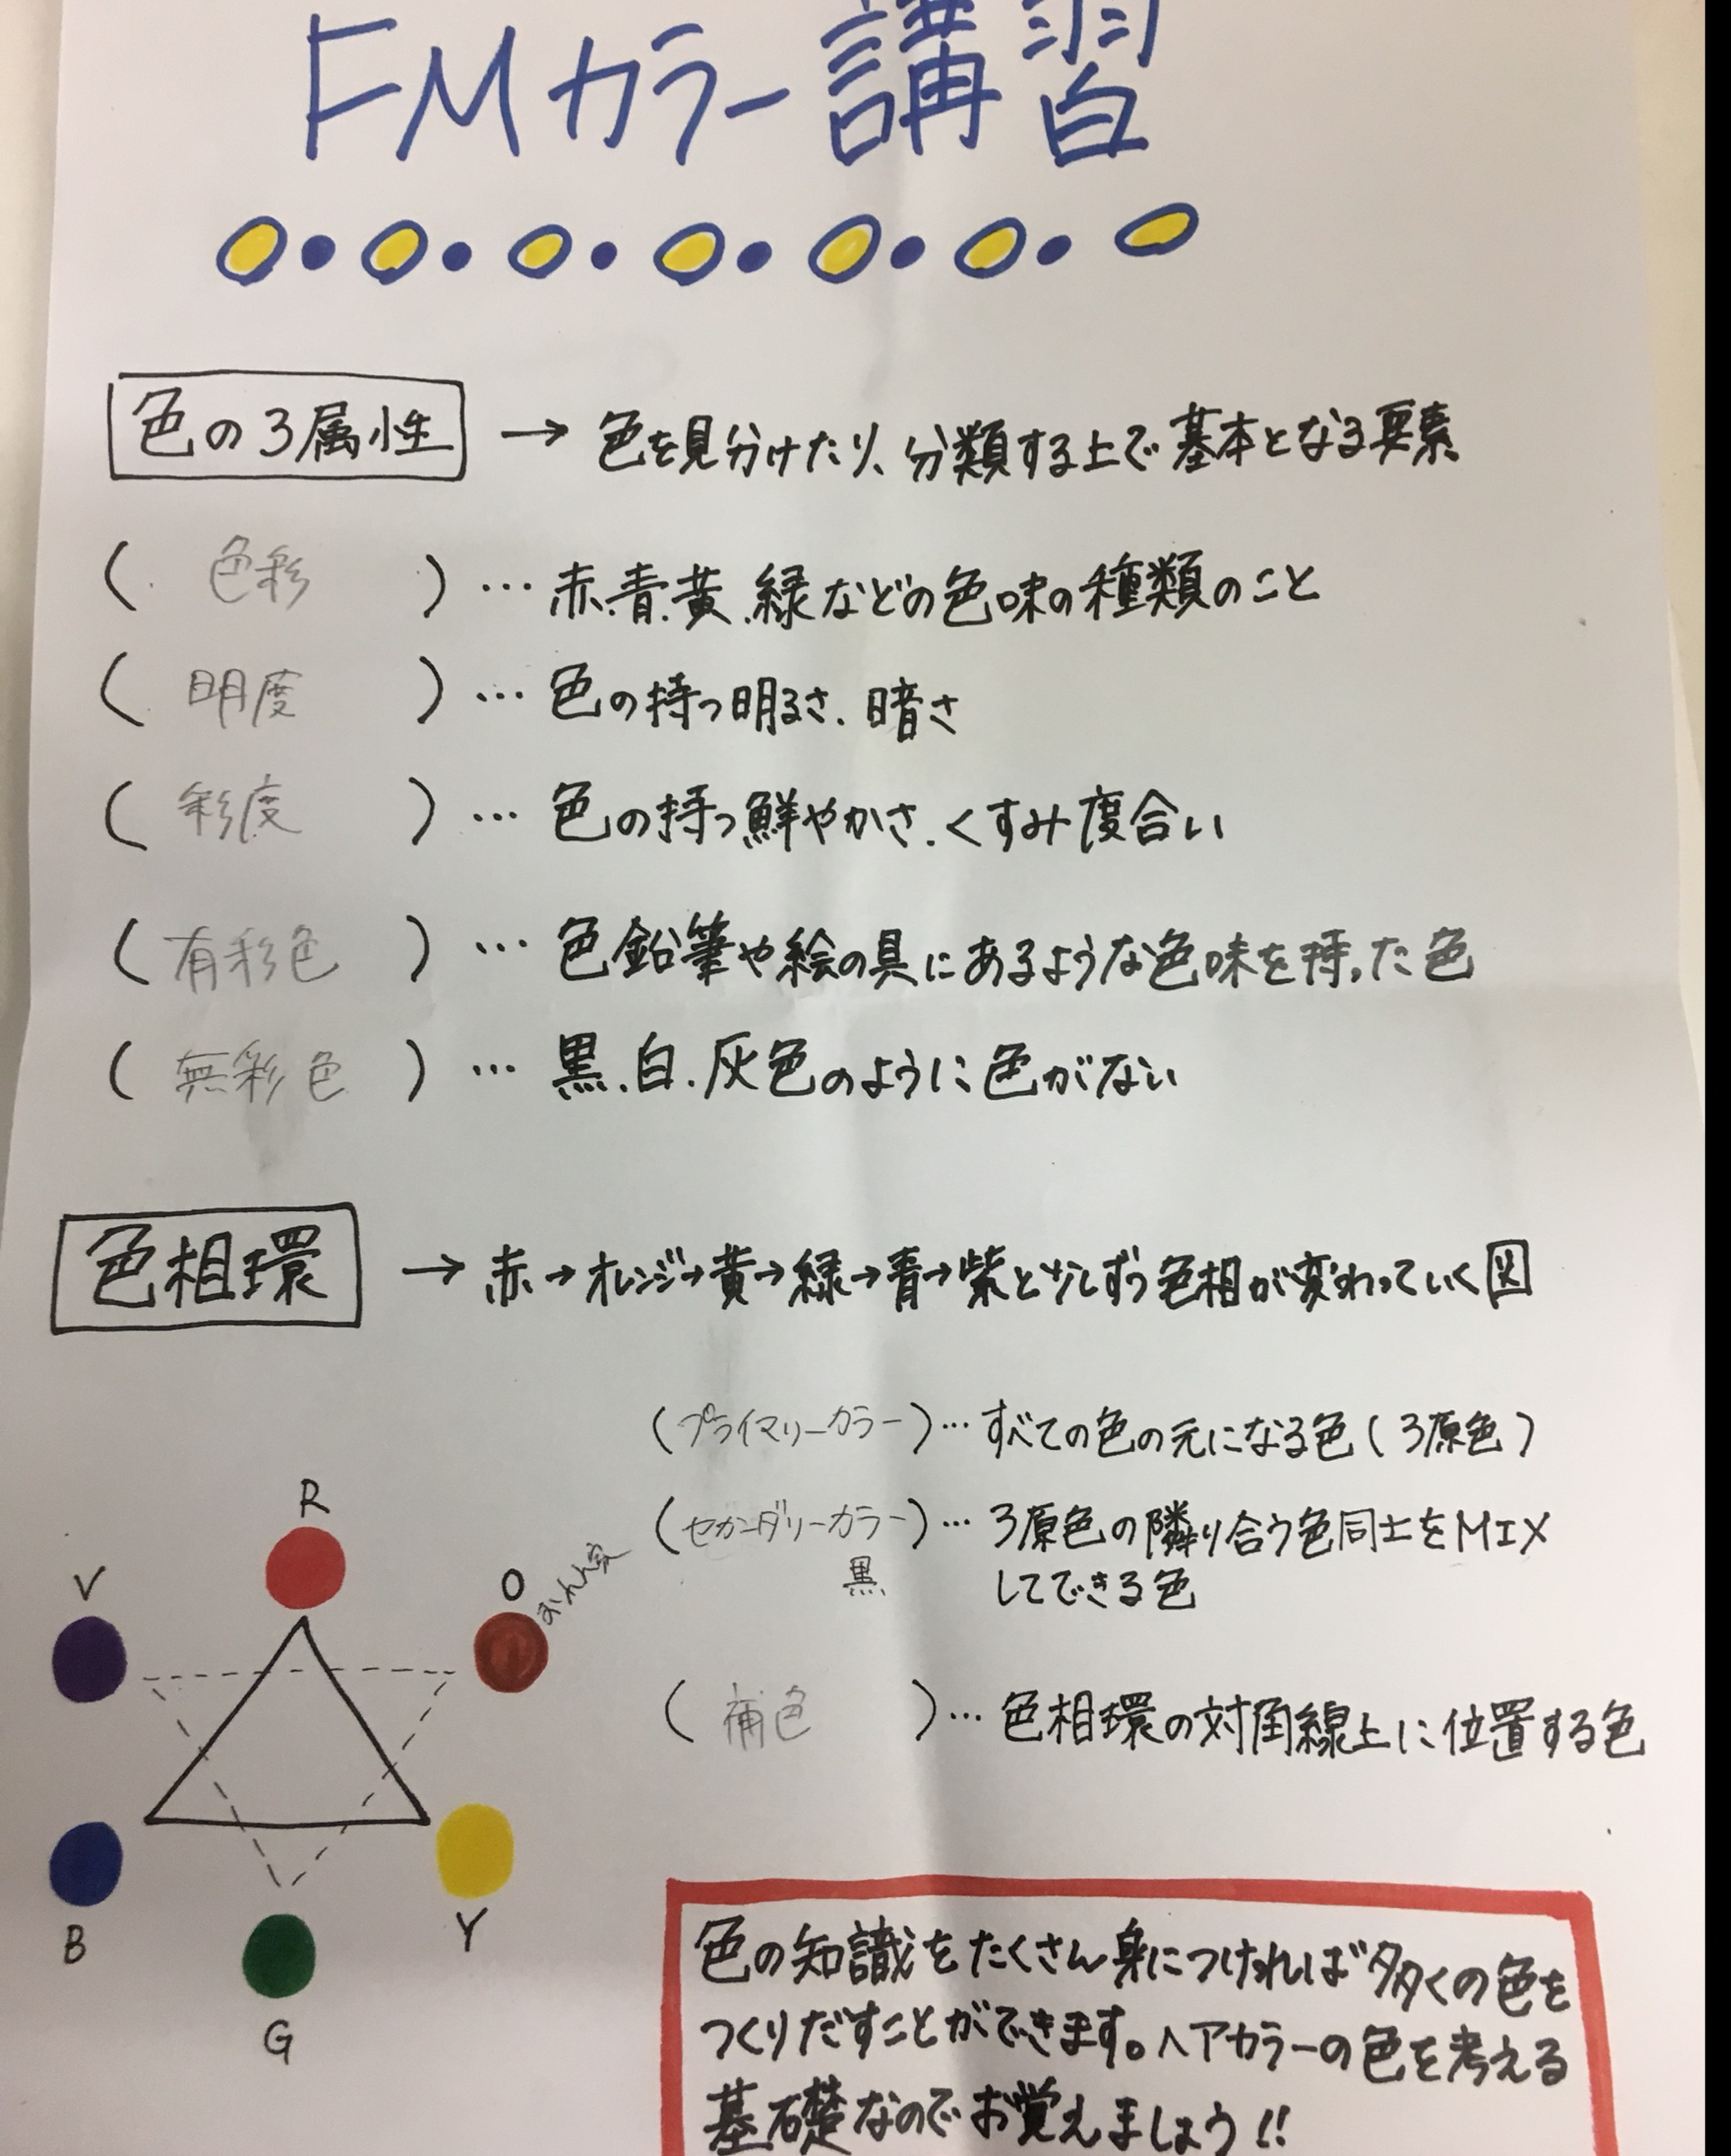 FMカラー講習
色の3属性 → 色を見分けたり、分類する上で基本となる要素
( 色彩 ) … 赤.青.黄.緑などの色味の種類のこと
( 明度 ) … 色の持つ明るさ.暗さ
( 彩度 ) … 色の持つ鮮やかさ.くすみ度合い
( 有彩色 ) … 色鉛筆や絵の具にあるような色味を持った色
( 無彩色 ) … 黒.白.灰色のように色がない
色相環 → 赤→オレンジ→黄→緑→青→紫と少しずつ色相が変わっていく図
(プライマリーカラー)…すべての色の元になる色(3原色)
(セカンダリーカラー)…3原色の隣り合う色同士をMIX
黒
してできる色
( 補色 )…色相環の対角線上に位置する色
R
V
O
B
Y
G
色の知識をたくさん身につければ多くの色を
つくりだすことができます。ヘアカラーの色を考える
基礎なのでお覚えましょう!!